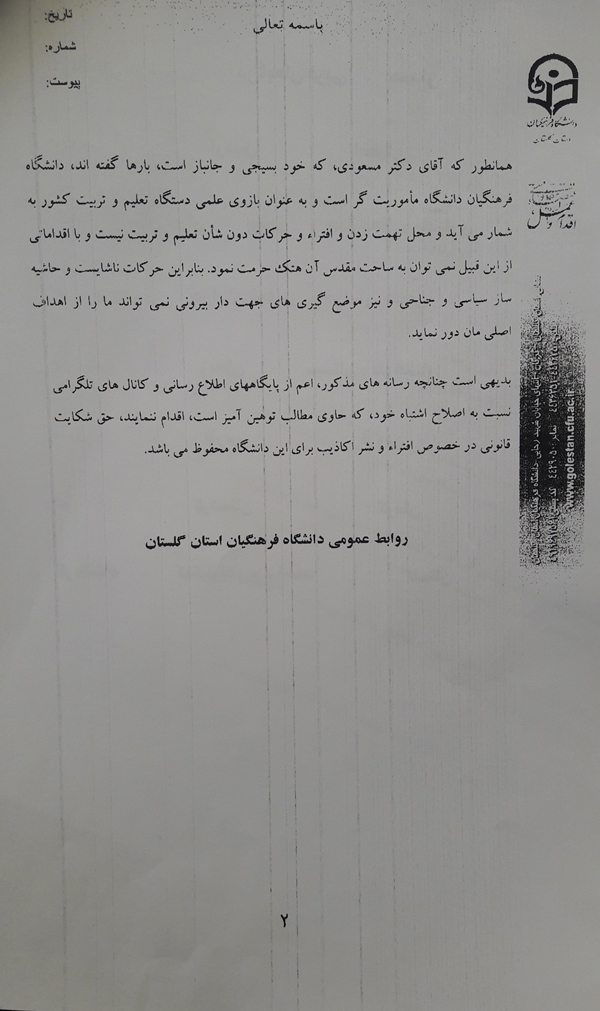 باسمه تعالی
تاریخ:
شماره:
پیوست:
دانشگاه فرهنگیان
استان گلستان
همانطور که آقای دکتر مسعودی، که خود بسیجی و جانباز است، بارها گفته اند، دانشگاه
فرهنگیان دانشگاه مأموریت گر است و به عنوان بازوی علمی دستگاه تعلیم و تربیت کشور به
شمار می آید و محل تهمت زدن و افتراء و حرکات دون شأن تعلیم و تربیت نیست و با اقداماتی
از این قبیل نمی توان به ساحت مقدس آن هتک حرمت نمود. بنابراین حرکات ناشایست و حاشیه
ساز سیاسی و جناحی و نیز موضع گیری های جهت دار بیرونی نمی تواند ما را از اهداف
اصلی مان دور نماید.
بدیهی است چنانچه رسانه های مذکور، اعم از پایگاههای اطلاع رسانی و کانال های تلگرامی
نسبت به اصلاح اشتباه خود، که حاوی مطالب توهین آمیز است، اقدام ننمایند، حق شکایت
قانونی در خصوص افتراء و نشر اکاذیب برای این دانشگاه محفوظ می باشد.
روابط عمومی دانشگاه فرهنگیان استان گلستان
www.golestan.cfu.ac.ir
۲